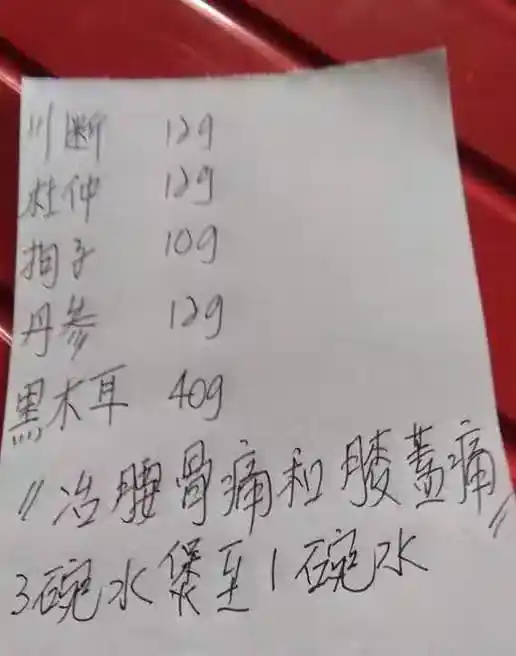 川断 12g
杜仲 12g
拘子 10g
丹参 12g
黑木耳 40g
"治腰骨痛和膝蓋痛"
3碗水煲至1碗水